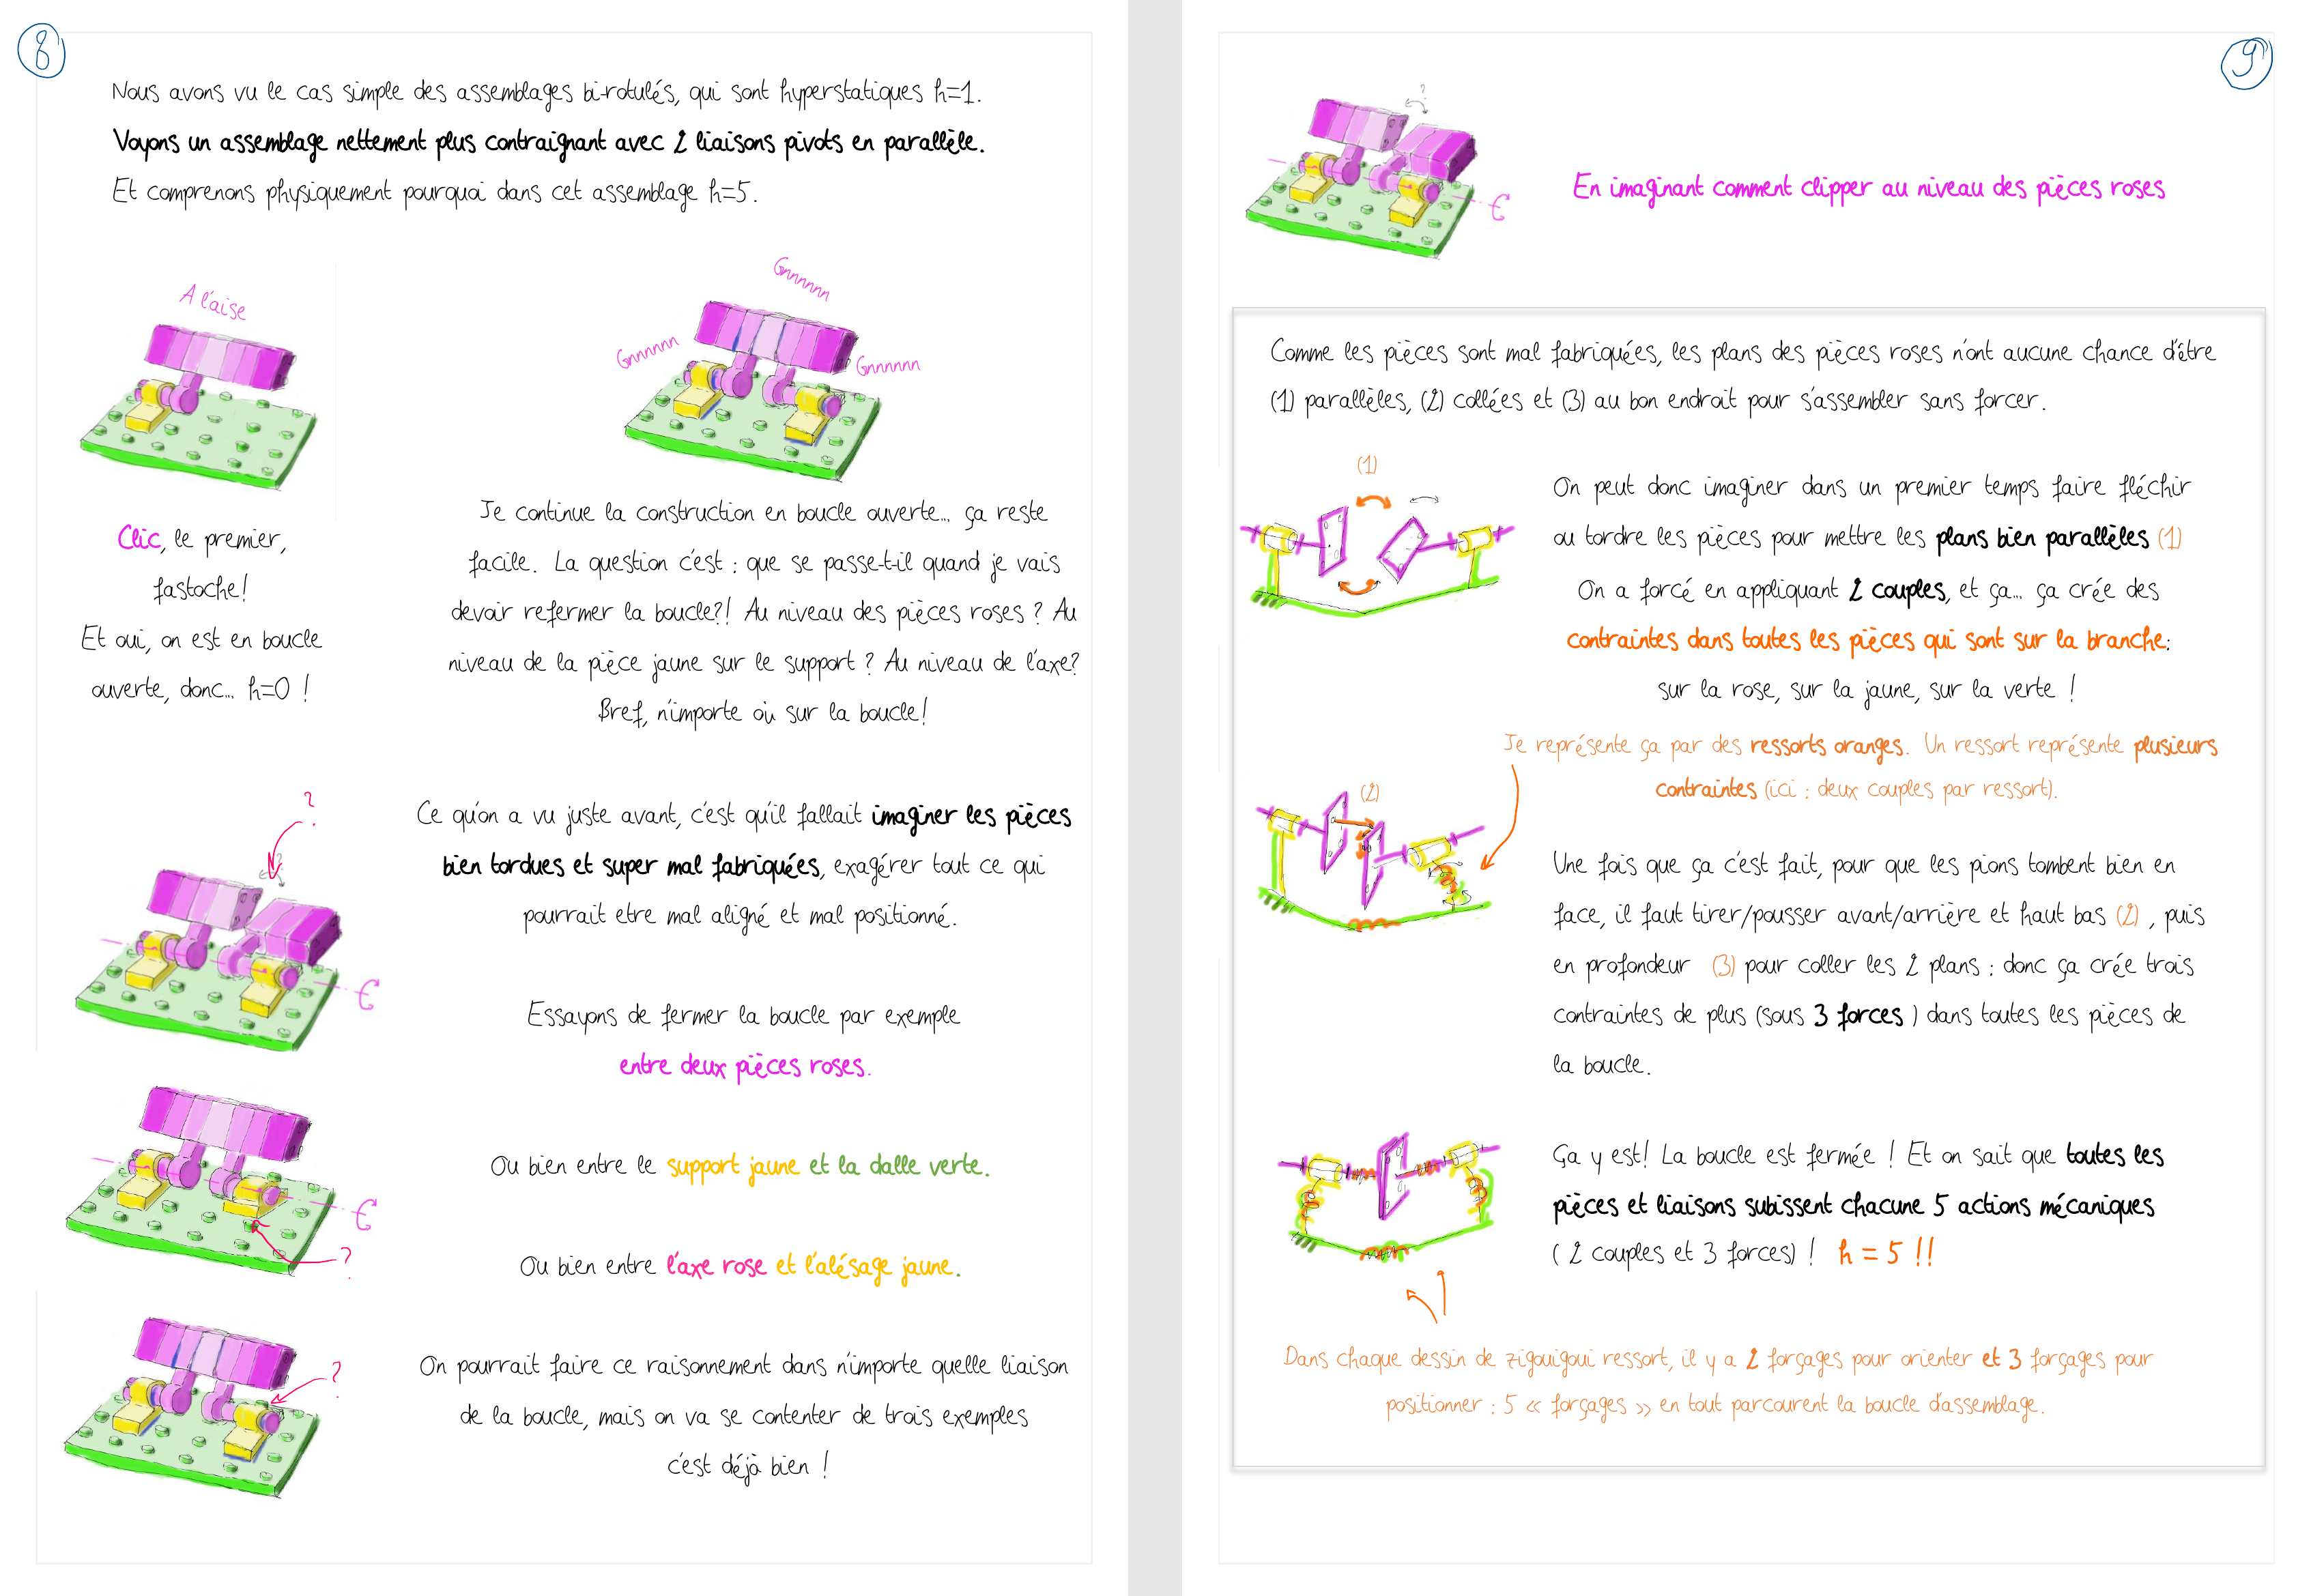 8
Nous avons vu le cas simple des assemblages bi-rotulés, qui sont hyperstatiques h=1.
Voyons un assemblage nettement plus contraignant avec 2 liaisons pivots en parallèle.
Et comprenons physiquement pourquoi dans cet assemblage h=5.
A l'aise
Gnnnnnn
Gnnnnnn
Gnnnnnn
Clic, le premier,
fastoche!
Et oui, on est en boucle
ouverte, donc... h=0 !
Je continue la construction en boucle ouverte... ça reste
facile. La question c'est : que se passe-t-il quand je vais
devoir refermer la boucle?! Au niveau des pièces roses ? Au
niveau de la pièce jaune sur le support ? Au niveau de l'axe?
Bref, n'importe où sur la boucle!
?
Ce qu'on a vu juste avant, c'est qu'il fallait imaginer les pièces
bien tordues et super mal fabriquées, exagérer tout ce qui
pourrait etre mal aligné et mal positionné.
Essayons de fermer la boucle par exemple
entre deux pièces roses.
Ou bien entre le support jaune et la dalle verte.
?
Ou bien entre l'axe rose et l'alésage jaune.
?
On pourrait faire ce raisonnement dans n'importe quelle liaison
de la boucle, mais on va se contenter de trois exemples
c'est déjà bien !
9
?
En imaginant comment clipper au niveau des pièces roses
Comme les pièces sont mal fabriquées, les plans des pièces roses n'ont aucune chance d'être
(1) parallèles, (2) collées et (3) au bon endroit pour s'assembler sans forcer.
(1)
On peut donc imaginer dans un premier temps faire fléchir
ou tordre les pièces pour mettre les plans bien parallèles (1)
On a forcé en appliquant 2 couples, et ça... ça crée des
contraintes dans toutes les pièces qui sont sur la branche:
sur la rose, sur la jaune, sur la verte !
Je représente ça par des ressorts oranges. Un ressort représente plusieurs
contraintes (ici : deux couples par ressort).
(2)
Une fois que ça c'est fait, pour que les pions tombent bien en
face, il faut tirer/pousser avant/arrière et haut bas (2) , puis
en profondeur (3) pour coller les 2 plans : donc ça crée trois
contraintes de plus (sous 3 forces ) dans toutes les pièces de
la boucle.
Ça y est! La boucle est fermée ! Et on sait que toutes les
pièces et liaisons subissent chacune 5 actions mécaniques
( 2 couples et 3 forces) ! h = 5 !!
Dans chaque dessin de zigouigoui ressort, il y a 2 forçages pour orienter et 3 forçages pour
positionner : 5 « forçages » en tout parcourent la boucle d'assemblage.